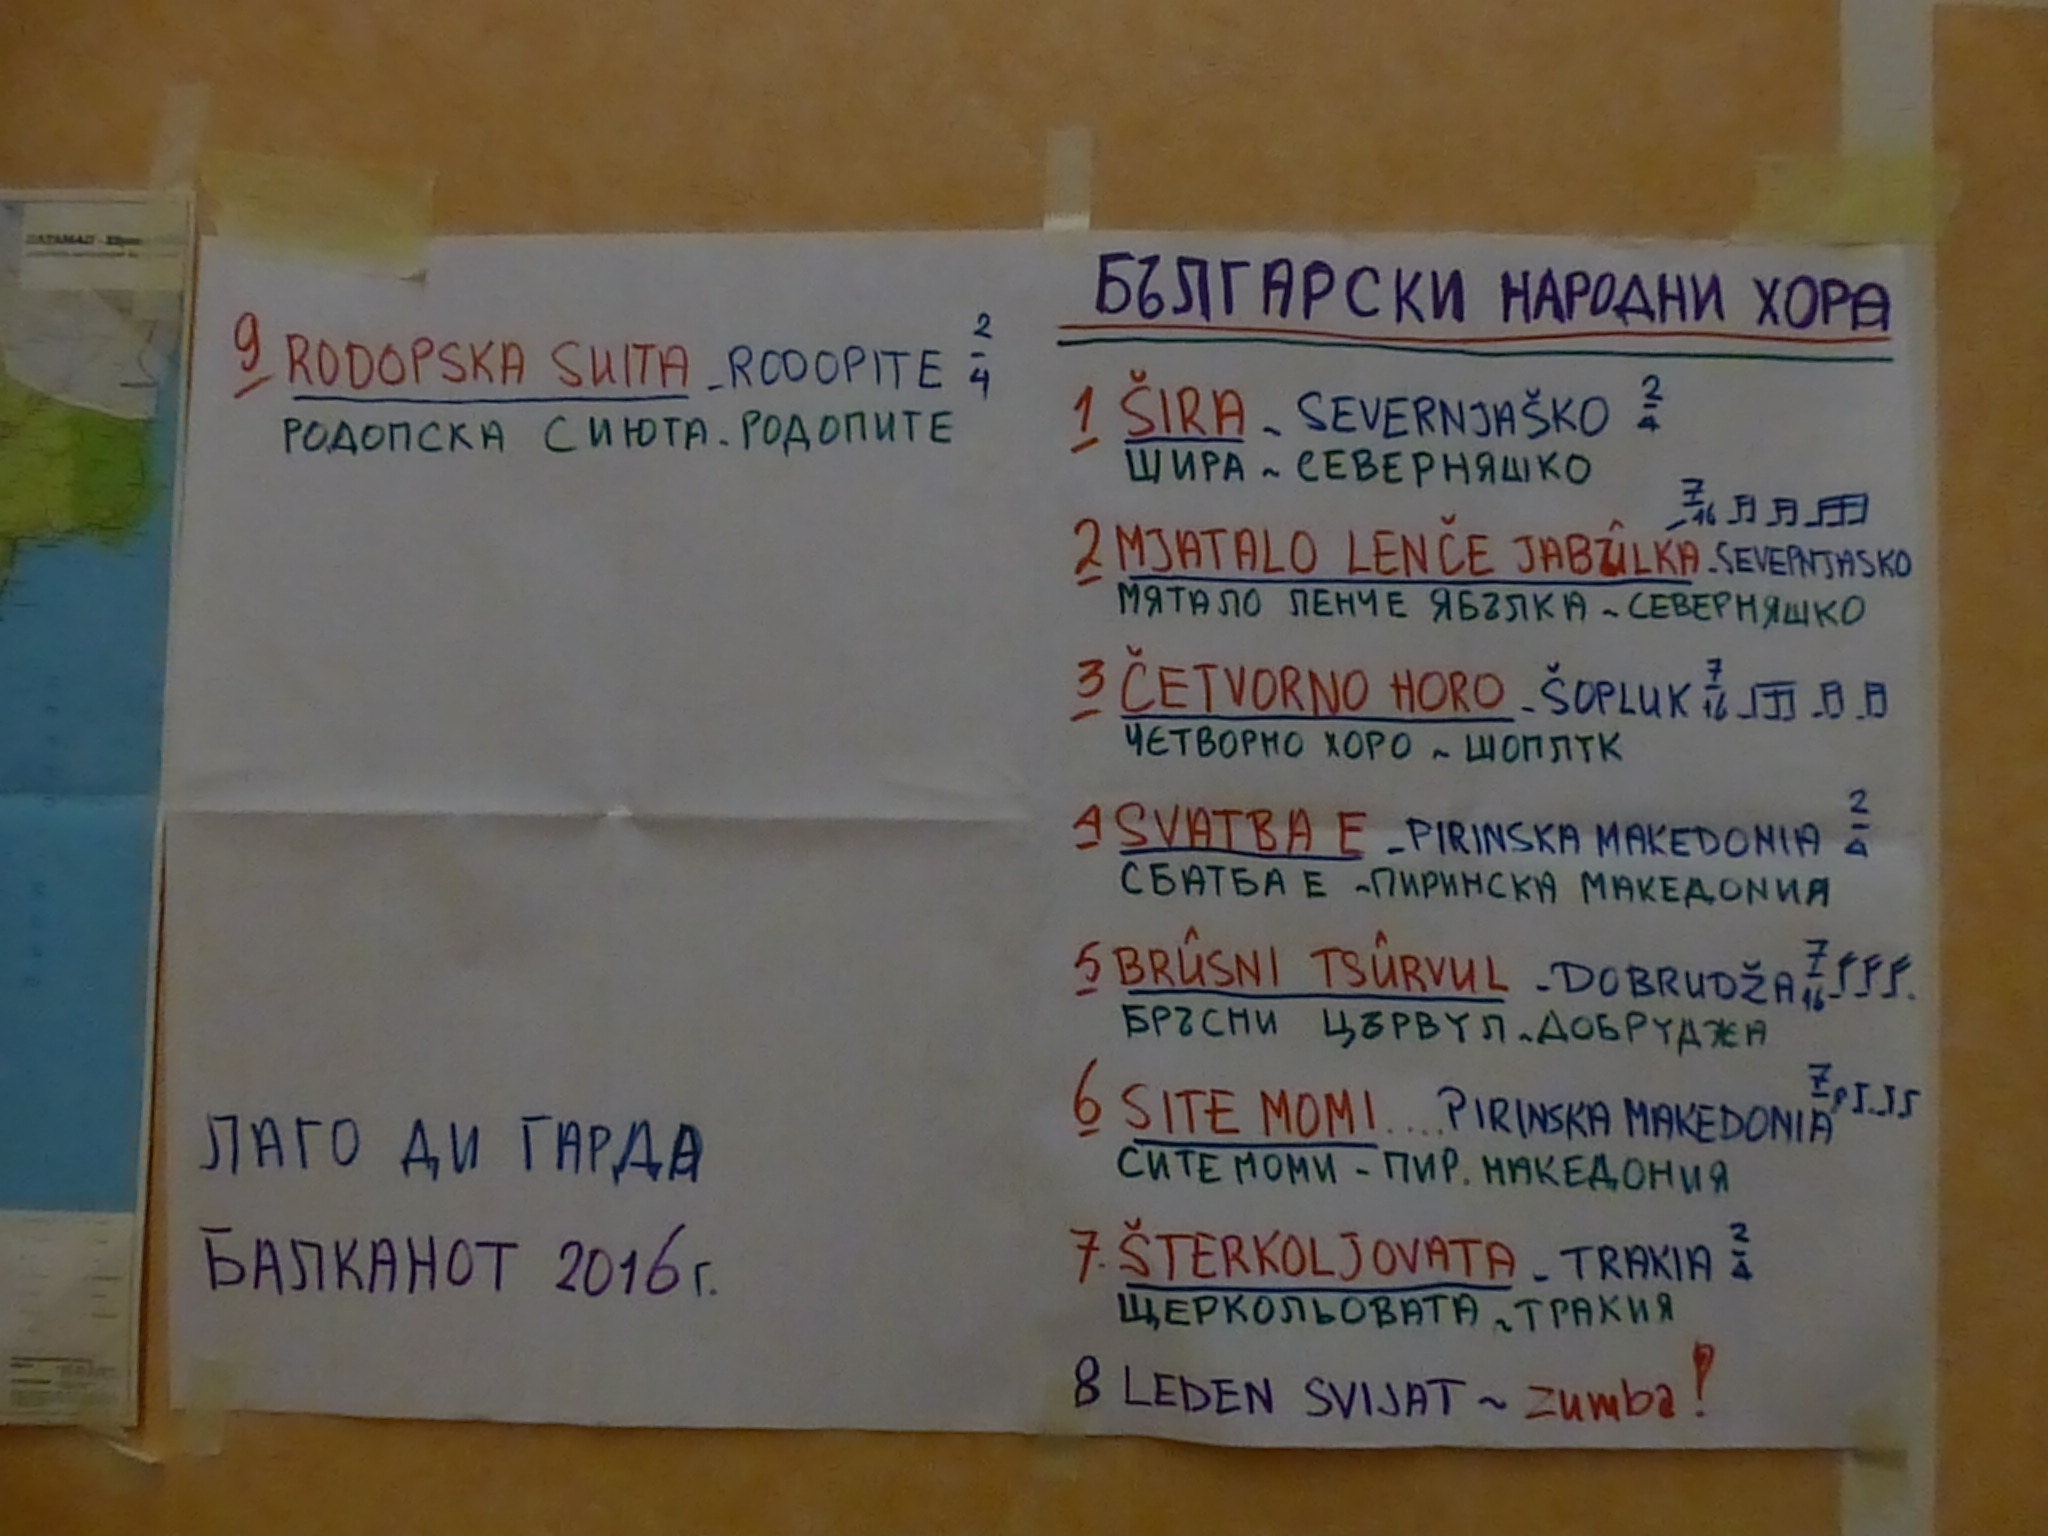 БЪЛГАРСКИ НАРОДНИ ХОРА
1 ŠIRA ~ SEVERNJAŠKO 2/4
ЩИРА ~ СЕВЕРНЯШКО
7/16
2 MJATALO LENČE JABÛLKA - SEVERNJASKO
МЯТАЛО ЛЕНЧЕ ЯБЪЛКА ~ СЕВЕРНЯШКО
3 ČETVORNO HORO - ŠOPLUK 7/16
ЧЕТВОРНО ХОРО ~ ШОПЛТК
4 SVATBA E - PIRINSKA MAKEDONIA 2/4
СБАТБА Е ~ ПИРИНСКА МАКЕДОNИЯ
5 BRÛSNI TSÛRVUL - DOBRUDŽA 7/16
БРЪСНИ ЦЪРВУЛ ~ ДОБРУДЖА
6 SITE MOMI .... PIRINSKA MAKEDONIA 7
СИТЕ МОМИ - ПИР. МАКЕДОНИЯ
7. ŠTERKOLJOVATA - TRAKIA 2/4
ЩЕРКОЛЬОВАТА ~ ТРАКИЯ
8 LEDEN SVIJAT ~ zumba!
9 RODOPSKA SUITA - RODOPITE 2/4
РОДОПСКА СИЮТА - РОДОПИТЕ
ЛАГО ДИ ГАРДА
БАЛКАНОТ 2016 г.